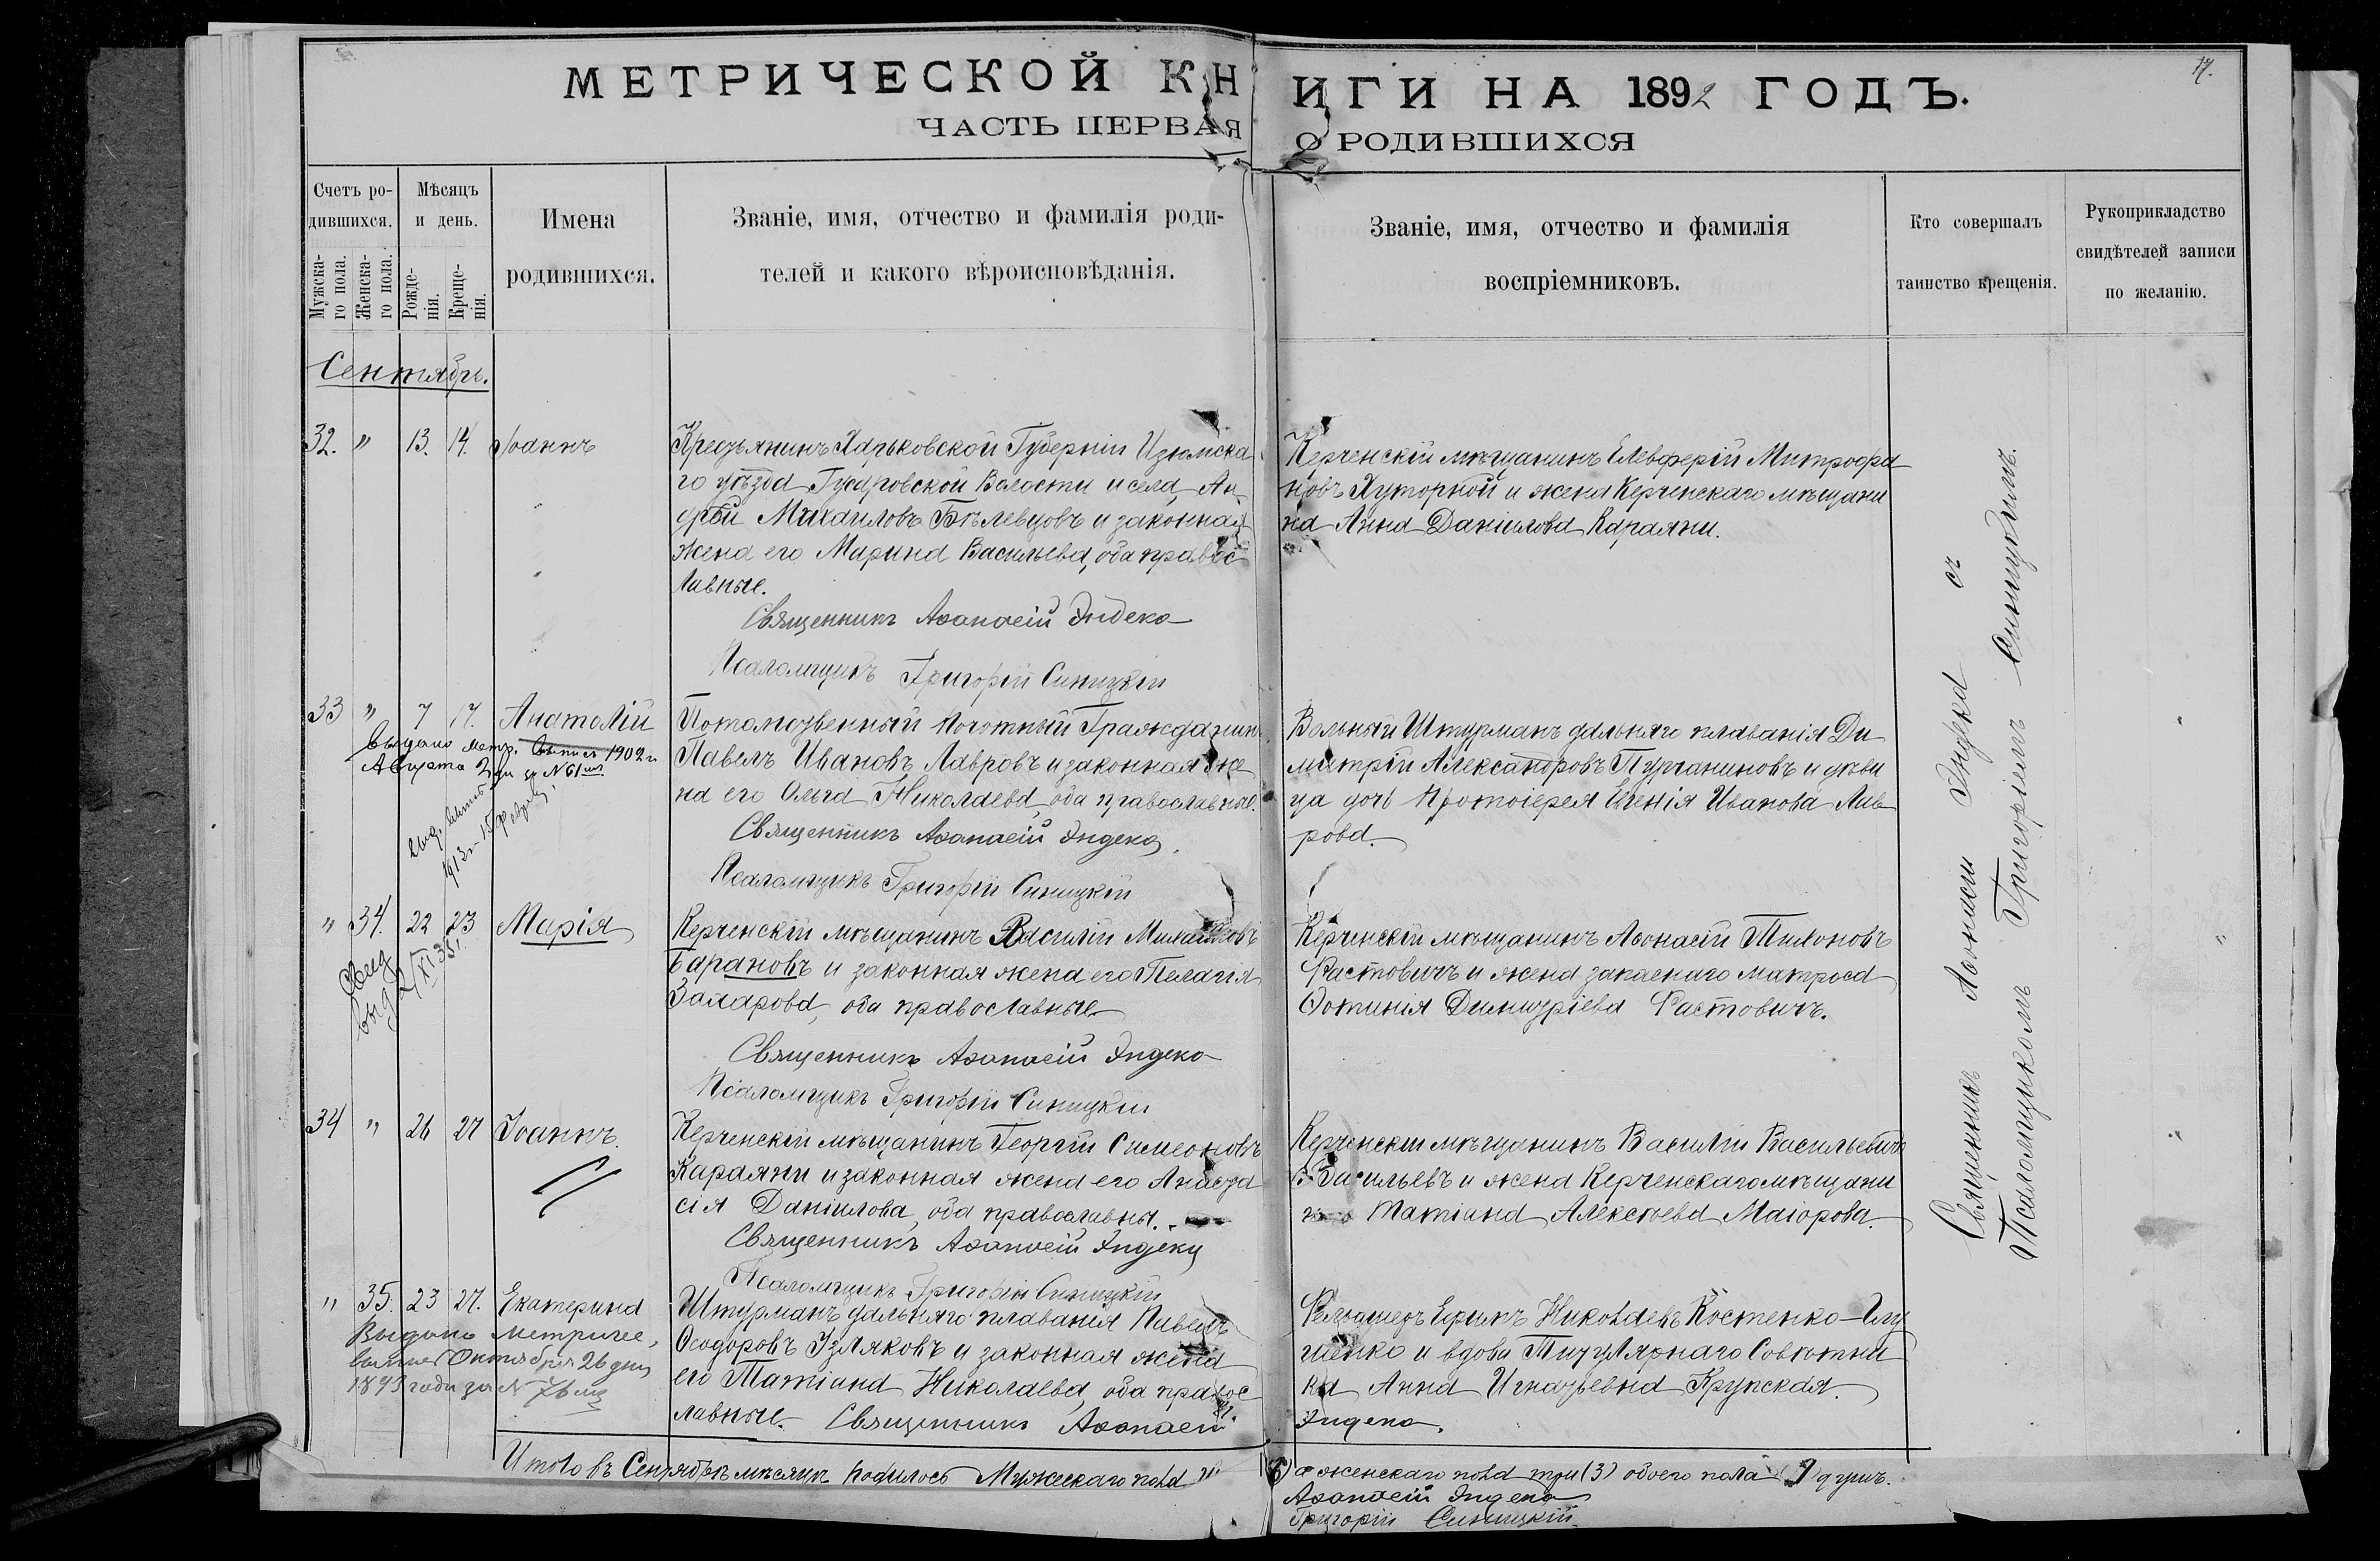 17.
МЕТРИЧЕСКОЙ КНИГИ НА 1892 ГОДЪ.
ЧАСТЬ ПЕРВАЯ О РОДИВШИХСЯ
Счетъ ро-
дившихся.
Мужска-
го пола.
Женска-
го пола.
Мѣсяцъ
и день.
Рожде-
нія.
Креще-
нія.
Имена
родившихся.
Званіе, имя, отчество и фамилія роди-
телей и какого вѣроисповѣданія.
Званіе, имя, отчество и фамилія
воспріемниковъ.
Кто совершалъ
таинство крещенія.
Рукоприкладство
свидѣтелей записи
по желанію.
Сентябрь.
32. " 13. 14. Іоаннъ
Крестьянинъ Харьковской Губерніи Изюмска
го уѣзда Гусаровской Волости и села Ан
дрей Михаиловъ Бѣлевцовъ и законная
жена его Марина Васильева, оба правос
лавные.
Священникъ Аѳанасій Эндека
Псаломщикъ Григорій Синицкій
Керченскій мѣщанинъ Елевферій Митрофа
новъ Хуторной и жена Керченскаго мѣщани
на Анна Даніилова Караяни.
33 " 7 17. Анатолій
Выдано метр. выпись 1902 г.
Августа 2 дня за № 61
1913 г. 15 февраля
Потомственный Почотный Гражданинъ
Павелъ Ивановъ Лавровъ и законная же
на его Ольга Николаева, оба православные.
Священникъ Аѳанасій Эндека
Псаломщикъ Григорій Синицкій
Вольный Штурманъ дальняго плаванія Ди
митрій Александровъ Пурганиновъ и дѣви
ца дочь Протоіерея Евгенія Иванова Лав
рова.
" 34. 22 23 Марія
Керченскій мѣщанинъ Василій Михаиловъ
Барановъ и законная жена его Пелагія
Захарова, оба православные
Священникъ Аѳанасій Эндека
Псаломщикъ Григорій Синицкій
Керченскій мѣщанинъ Аѳонасій Тихоновъ
Растовичъ и жена запаснаго матроса
Фотинія Димитріева Растовичъ.
34 " 26 27 Іоаннъ.
Керченскій мѣщанинъ Георгій Симеоновъ
Караяни и законная жена его Анаста
сія Даніилова, оба православны.
Священникъ Аѳанасій Эндека
Псаломщикъ Григорій Синицкій
Керченскій мѣщанинъ Василій Васильевичъ
Васильевъ и жена Керченскаго мѣщани
на Татіана Алексѣева Маіорова.
" 35. 23 27. Екатерина
Выдана Метричес.
выпись Октября 26 дня
1893 года за № 76
Штурманъ дальняго плаванія Павелъ
Ѳеодоровъ Изляковъ и законная жена
его Татіана Николаева, оба правос
лавные. Священникъ Аѳанасій
Фельдшеръ Ефимъ Николаевъ Костенко-Глу
шенко и вдова Титулярнаго Совѣтни
ка Анна Игнатьевна Крупская.
Эндека.
Священникъ Аѳонасій Эндека съ
Псаломщикомъ Григоріемъ Синицкимъ.
Итого въ Сентябрѣ мѣсяцѣ родилось Мужескаго пола
а женскаго пола три (3) обоего пола 9 душъ.
Аѳанасій Эндека
Григорій Синицкій